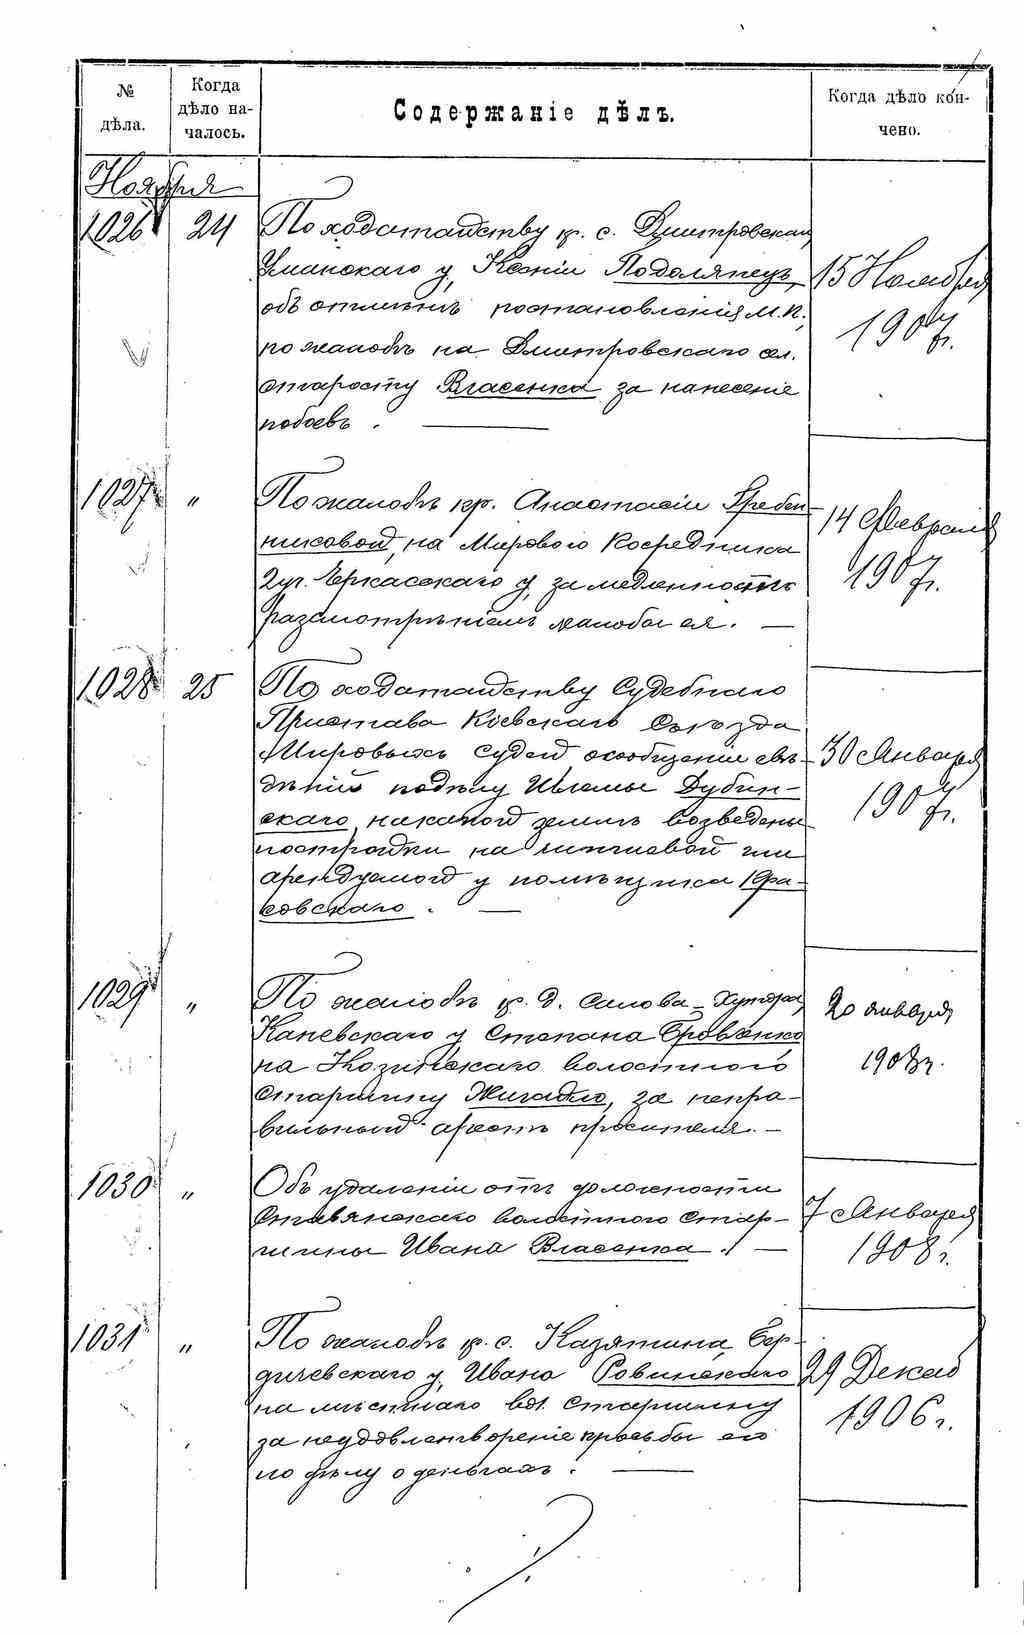 № дѣла.
Когда дѣло началось.
Содержаніе дѣлъ.
Когда дѣло кончено.
Ноября
1026 24
По ходатайству кр. с. Дмитровская
Уманскаго у, Ксеніи Подолянецъ,
объ отмѣнѣ постановленія М.П.,
по жалобѣ на Дмитровскаго сел.
старосту Власенка за нанесеніе
побоевъ.
15 Ноября
1907 г.
1027 "
По жалобѣ кр. Анастасіи Гребен-
никовой, на Мирового Посредника
2 уч. Черкасскаго у, за медленность
разсмотрѣніемъ жалобы ея.
14 Февраля
1907 г.
1028 25
По ходатайству Судебнаго
Пристава Кіевскаго Съѣзда
Мировыхъ Судей о сообщеніи свѣ-
дѣній по дѣлу Дубин-
скаго, на какой землѣ возведены
постройки на чиншевой или
арендуемой у помѣщика
30 Января
1907 г.
1029 "
По жалобѣ кр. д. Хутора,
Каневскаго у Степана
на Козинскаго волостного
Старшину Жигадло, за непра-
вильный арестъ просителя.
20 января
1908 г.
1030 "
Объ удаленіи отъ должности
Ставянскаго волостного Стар-
шины Ивана Власенка.
7 Января
1908 г.
1031 "
По жалобѣ кр. с. Казятина, Бер-
дичевскаго у, Ивана Ровинскаго
на мѣстнаго вол. старшину
за неудовлетвореніе просьбы его
по дѣлу о деньгахъ.
29 Декаб
1906 г.